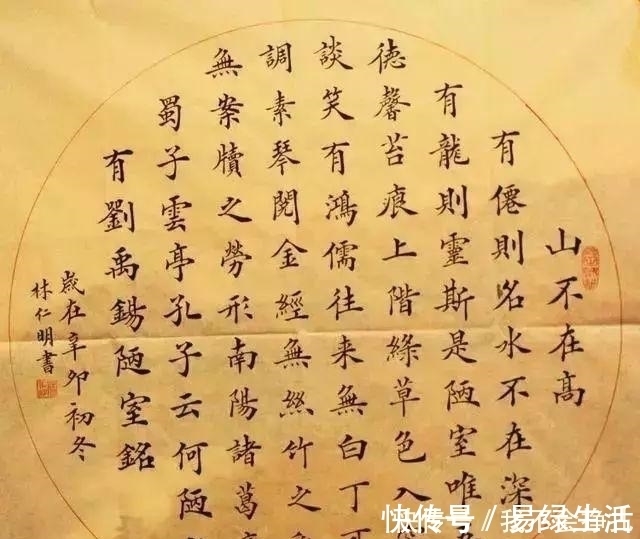 山不在高
有僊則名水不在深
有龍則靈斯是陋室唯
德馨苔痕上階綠草色入
談笑有鴻儒往来無白丁可
調素琴閱金經無絲竹之
無案牘之勞形南陽諸葛
蜀子雲亭孔子云何陋
有劉禹錫陋室銘
歲在辛卯初冬
林仁明書
快传号／易绿生活